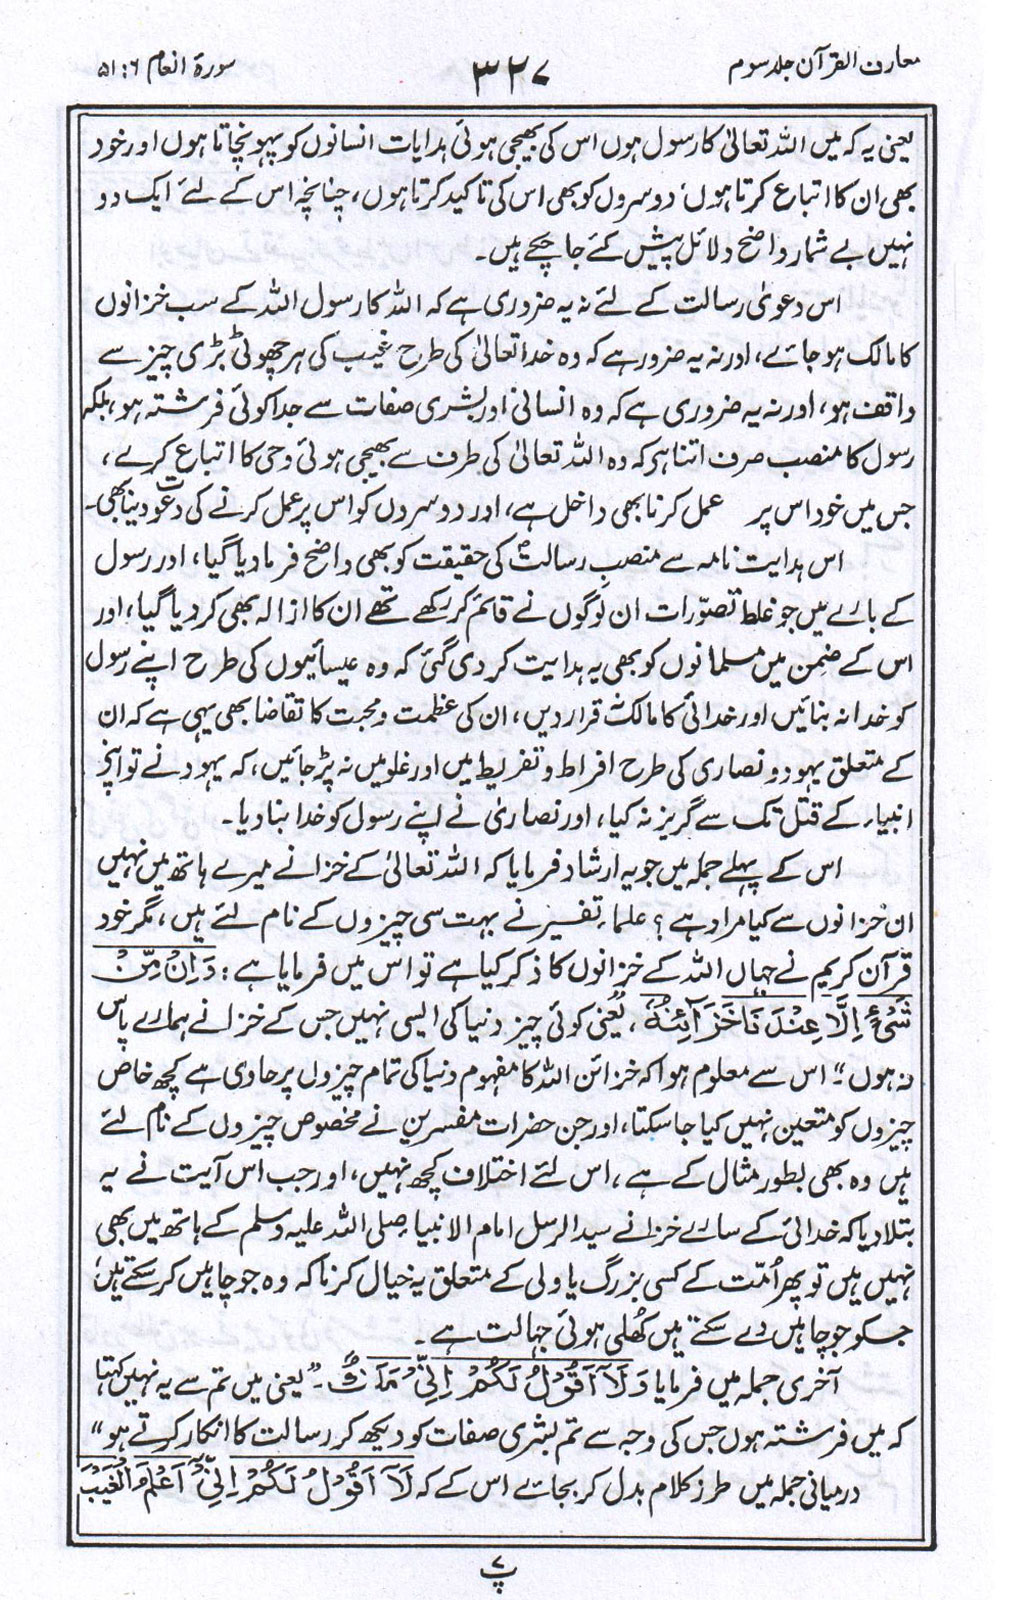 معارف القرآن جلد سوم
۳۲۷
سورۃ انعام ۶ : ۵۱
یعنی یہ کہ میں اللہ تعالیٰ کا رسول ہوں اس کی بھیجی ہوئی ہدایات انسانوں کو پہونچاتا ہوں اور خود
بھی ان کا اتباع کرتا ہوں، دوسروں کو بھی اس کی تاکید کرتا ہوں، چنانچہ اس کے لئے ایک دو
نہیں بے شمار واضح دلائل پیش کئے جا چکے ہیں۔
اس دعویٰ رسالت کے لئے نہ یہ ضروری ہے کہ اللہ کا رسول اللہ کے سب خزانوں
کا مالک ہو جائے، اور نہ یہ ضرور ہے کہ وہ خدا تعالیٰ کی طرح غیب کی ہر چھوٹی بڑی چیز سے
واقف ہو، اور نہ یہ ضروری ہے کہ وہ انسانی اور بشری صفات سے جدا کوئی فرشتہ ہو، بلکہ
رسول کا منصب صرف اتنا ہو کہ وہ اللہ تعالیٰ کی طرف سے بھیجی ہوئی وحی کا اتباع کرے،
جس میں خود اس پر عمل کرنا بھی داخل ہے، اور دوسروں کو اس پر عمل کرنے کی دعوت دینا بھی۔
اس ہدایت نامہ سے منصبِ رسالت کی حقیقت کو بھی واضح فرما دیا گیا، اور رسول
کے بارے میں جو غلط تصورات ان لوگوں نے قائم کر رکھے تھے ان کا ازالہ بھی کر دیا گیا، اور
اس کے ضمن میں مسلمانوں کو بھی یہ ہدایت کر دی گئی کہ وہ عیسائیوں کی طرح اپنے رسول
کو خدا نہ بنائیں اور خدائی کا مالک نہ قرار دیں، ان کی عظمت و محبت کا تقاضا بھی یہی ہے کہ ان
کے متعلق یہود و نصاریٰ کی طرح افراط و تفریط میں اور غلو میں نہ پڑ جائیں، کہ یہود نے تو اپنے
انبیاء کے قتل تک سے گریز نہ کیا، اور نصاریٰ نے اپنے رسول کو خدا بنا دیا۔
اس کے پہلے جملہ میں جو یہ ارشاد فرمایا کہ اللہ تعالیٰ کے خزانے میرے ہاتھ میں نہیں
ان خزانوں سے کیا مراد ہے؟ علماء تفسیر نے بہت سی چیزوں کے نام لئے ہیں، مگر خود
قرآن کریم نے جہاں اللہ کے خزانوں کا ذکر کیا ہے تو اس میں فرمایا ہے: وَاِنْ مِّنْ
شَیْءٍ اِلَّا عِنْدَنَا خَزَآئِنُہٗ، ”یعنی کوئی چیز دنیا کی ایسی نہیں جس کے خزانے ہمارے پاس
نہ ہوں“ اس سے معلوم ہوا کہ خزائن اللہ کا مفہوم دنیا کی تمام چیزوں پر حاوی ہے کچھ خاص
چیزوں کو متعین نہیں کیا جا سکتا، اور جن حضرات مفسرین نے مخصوص چیزوں کے نام لئے
ہیں وہ بھی بطور مثال کے ہے، اس لئے اختلاف کچھ نہیں، اور جب اس آیت نے یہ
بتلا دیا کہ خدائی کے سارے خزانے سید الرسل امام الانبیاء صلی اللہ علیہ وسلم کے ہاتھ میں بھی
نہیں ہیں تو پھر اُمت کے کسی بزرگ یا ولی کے متعلق یہ خیال کرنا کہ وہ جو چاہیں کر سکتے ہیں،
جسکو جو چاہیں دے سکتے ہیں کُھلی ہوئی جہالت ہے۔
آخری جملہ میں فرمایا وَلَآ اَقُوْلُ لَکُمْ اِنِّیْ مَلَکٌ۔ ”یعنی میں تم سے یہ نہیں کہتا
کہ میں فرشتہ ہوں جس کی وجہ سے تم بشری صفات کو دیکھ کر رسالت کا انکار کرتے ہو“
درمیانی جملہ میں طرز کلام بدل کر بجائے اس کے کہ لَآ اَقُوْلُ لَکُمْ اِنِّیْ اَعْلَمُ الْغَیْبَ